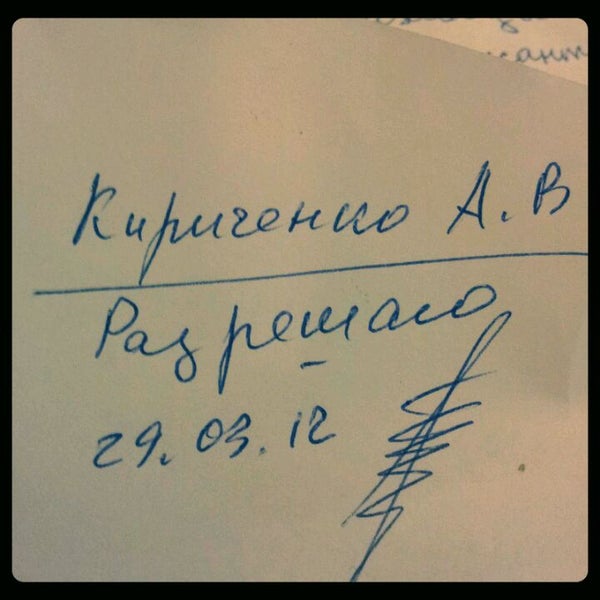 Кириченко А. В
Разрешаю
29.03.12